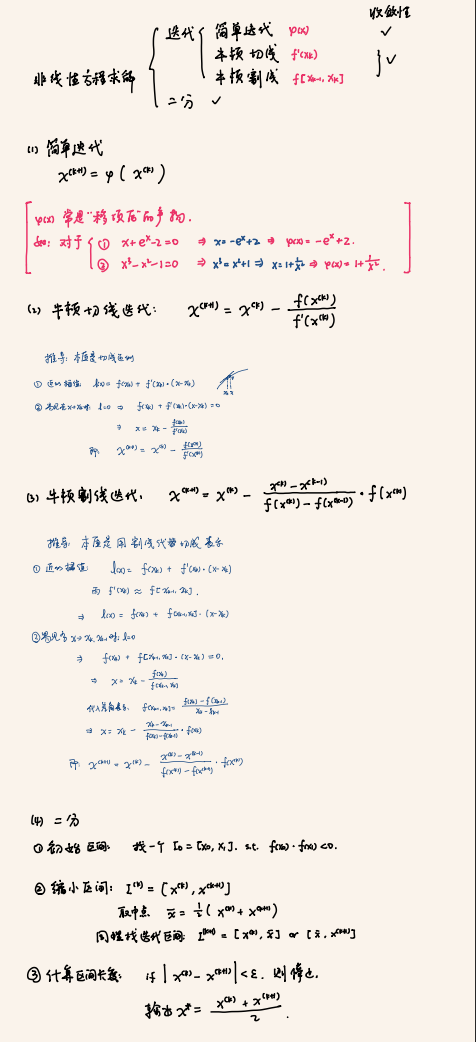 收敛性
非线性方程求解 { 迭代 { 简单迭代 φ(x) ✓
牛顿切线 f'(xₖ)
牛顿割线 f[xₖ₋₁, xₖ] } ✓
二分 ✓
(1) 简单迭代
x⁽ᵏ⁺¹⁾ = φ( x⁽ᵏ⁾ )
φ(x) 常是"移项后"的产物.
如: 对于 { ① x+eˣ-2=0 ⇒ x=-eˣ+2 ⇒ φ(x)=-eˣ+2.
② x³-x²-1=0 ⇒ x³=x²+1 ⇒ x=1+1/x² ⇒ φ(x)=1+1/x².
(2) 牛顿切线迭代: x⁽ᵏ⁺¹⁾ = x⁽ᵏ⁾ - f(x⁽ᵏ⁾)/f'(x⁽ᵏ⁾)
推导: 本质是切线
① 近似 l(x)= f(xₖ) + f'(xₖ)·(x-xₖ)
② l=0 ⇒ f(xₖ) + f'(xₖ)·(x-xₖ)=0
⇒ x = xₖ - f(xₖ)/f'(xₖ)
即: x⁽ᵏ⁺¹⁾ = x⁽ᵏ⁾ - f(x⁽ᵏ⁾)/f'(x⁽ᵏ⁾)
(3) 牛顿割线迭代: x⁽ᵏ⁺¹⁾ = x⁽ᵏ⁾ - (x⁽ᵏ⁾-x⁽ᵏ⁻¹⁾)/(f(x⁽ᵏ⁾)-f(x⁽ᵏ⁻¹⁾)) · f(x⁽ᵏ⁾)
推导: 本质是用割线代替切线表示
① 近似 l(x)= f(xₖ) + f'(xₖ)·(x-xₖ)
而 f'(xₖ) ≈ f[xₖ₋₁, xₖ].
⇒ l(x) = f(xₖ) + f[xₖ₋₁,xₖ]·(x-xₖ)
② l=0
⇒ f(xₖ) + f[xₖ₋₁,xₖ]·(x-xₖ)=0.
⇒ x = xₖ - f(xₖ)/f[xₖ₋₁,xₖ]
代入差商表示: f[xₖ₋₁,xₖ]= (f(xₖ)-f(xₖ₋₁))/(xₖ-xₖ₋₁)
⇒ x = xₖ - (xₖ-xₖ₋₁)/(f(xₖ)-f(xₖ₋₁)) · f(xₖ)
即: x⁽ᵏ⁺¹⁾ = x⁽ᵏ⁾ - (x⁽ᵏ⁾-x⁽ᵏ⁻¹⁾)/(f(x⁽ᵏ⁾)-f(x⁽ᵏ⁻¹⁾)) · f(x⁽ᵏ⁾)
(4) 二分
① 初始区间: 找一个 I₀=[x₀, x₁]. s.t. f(x₀)·f(x₁)<0.
② 缩小区间: I⁽ᵏ⁾ = [x⁽ᵏ⁾, x⁽ᵏ⁺¹⁾]
取中点 x̄ = 1/2( x⁽ᵏ⁾ + x⁽ᵏ⁺¹⁾)
同理找迭代区间 I⁽ᵏ⁺¹⁾ = [x⁽ᵏ⁾, x̄] or [x̄, x⁽ᵏ⁺¹⁾]
③ 计算区间长度: if |x⁽ᵏ⁾-x⁽ᵏ⁺¹⁾|<ε. 则停止.
输出 x* = (x⁽ᵏ⁾ + x⁽ᵏ⁺¹⁾)/2.